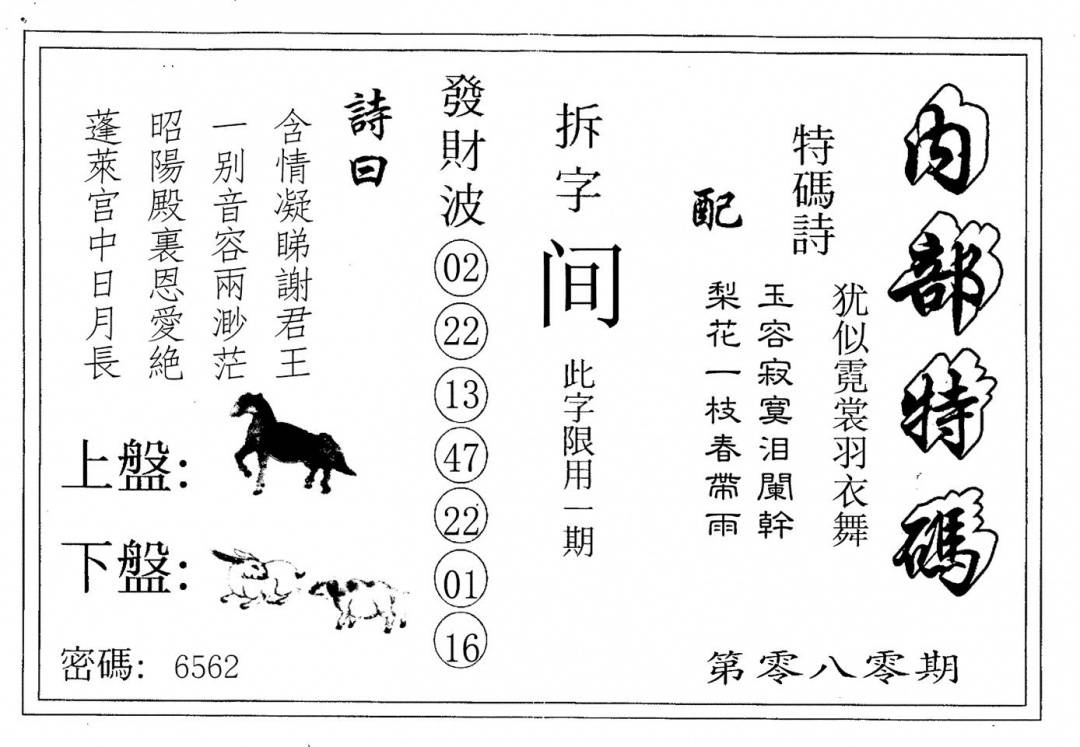 内部特碼
第零八零期
特碼詩
犹似霓裳羽衣舞
配
玉容寂寞泪闌幹
梨花一枝春帶雨
拆字
间
此字限用一期
發財波
02
22
13
47
22
01
16
詩曰
含情凝睇謝君王
一别音容兩渺茫
昭陽殿裏恩愛絶
蓬萊宫中日月長
上盤：
下盤：
密碼： 6562